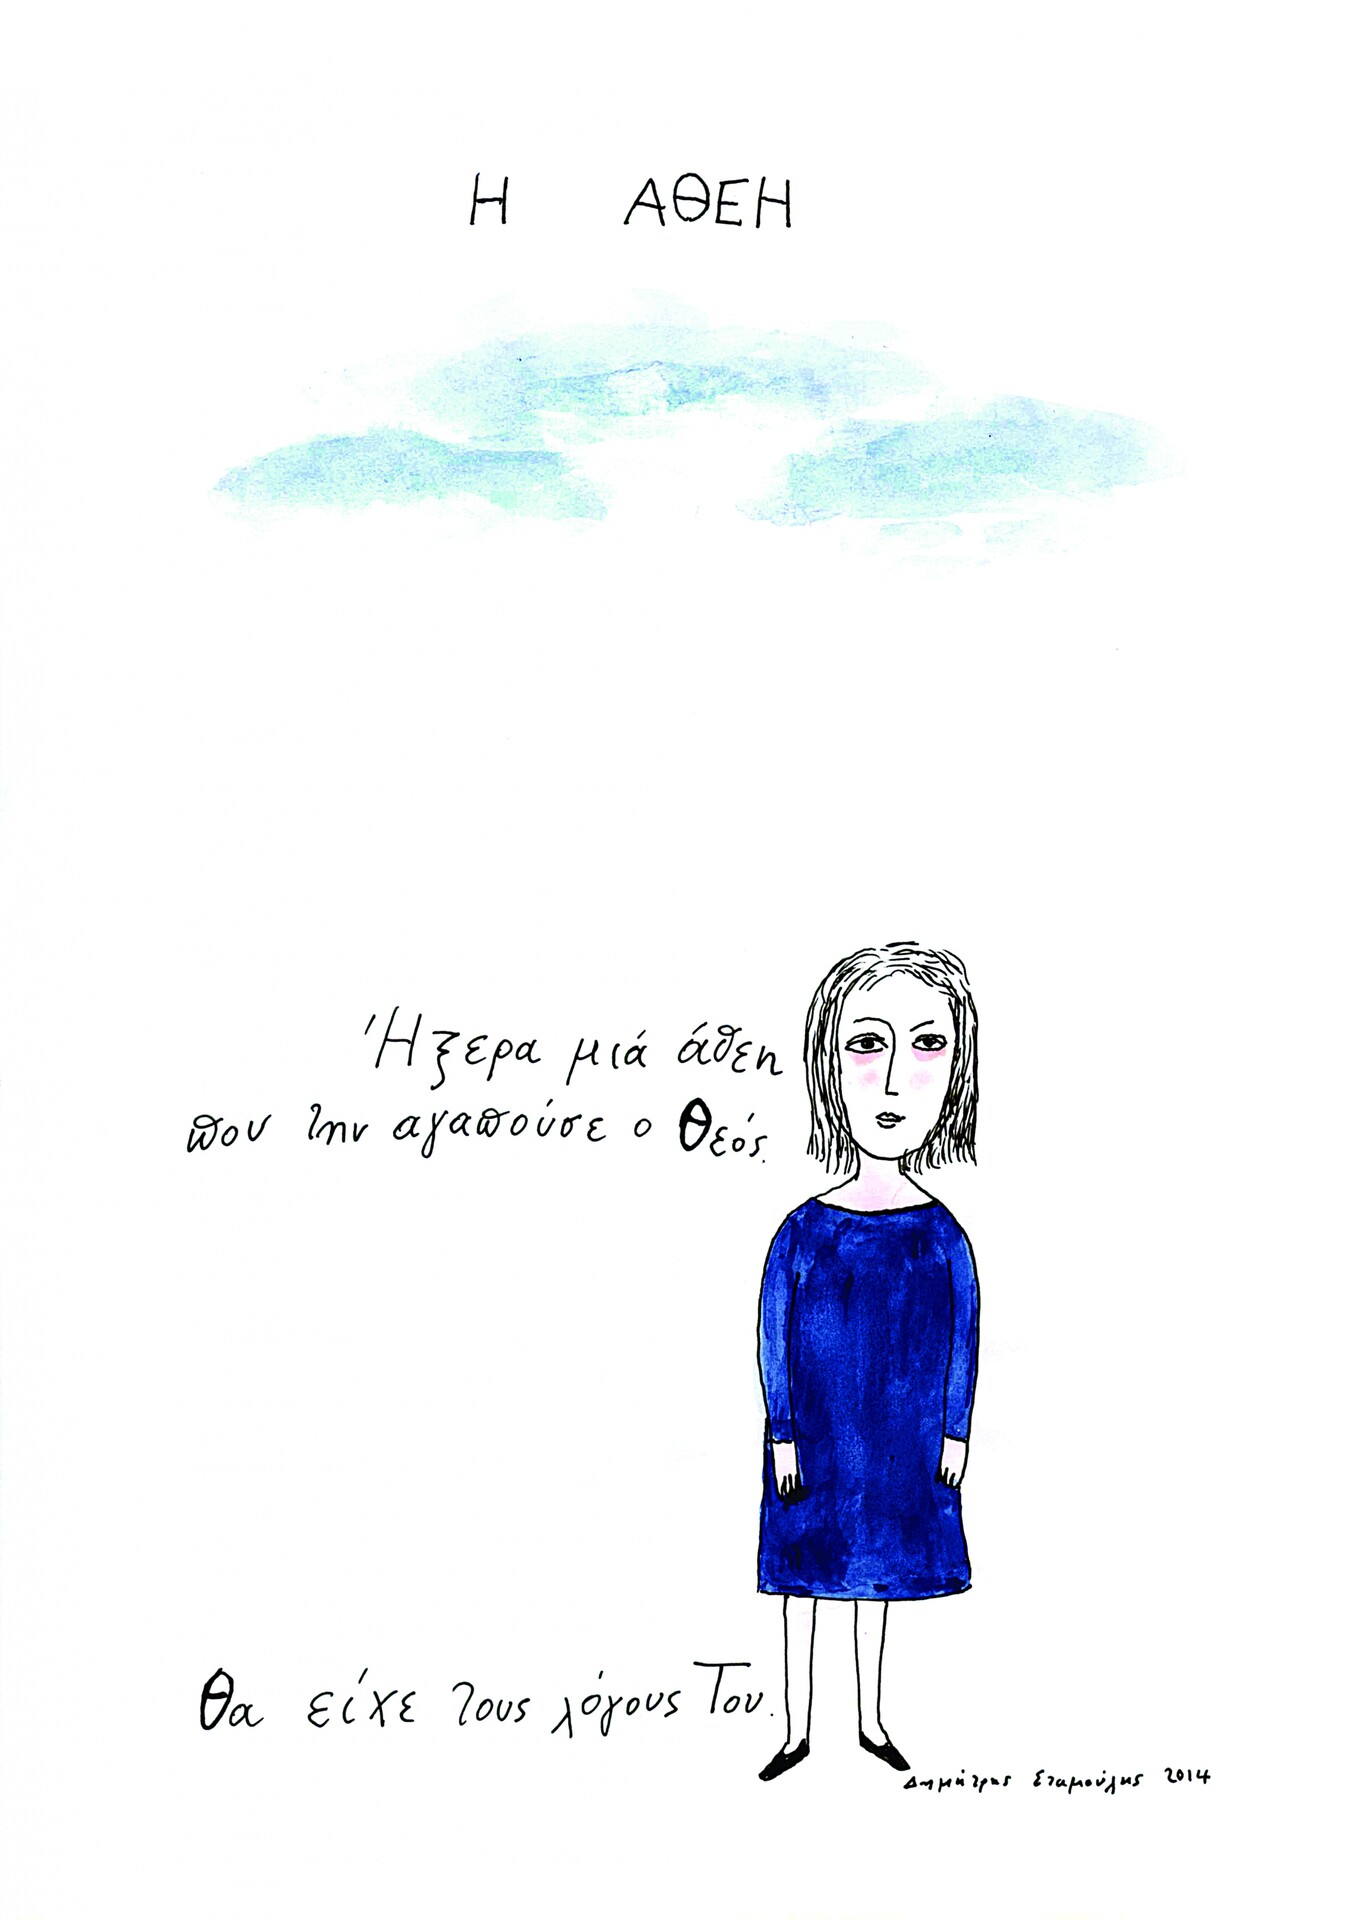 Η ΑΘΕΗ
Ήξερα μιά άθεη
που την αγαπούσε ο Θεός.
Θα είχε τους λόγους Του.
Δημήτρης Σταμούλης 2014